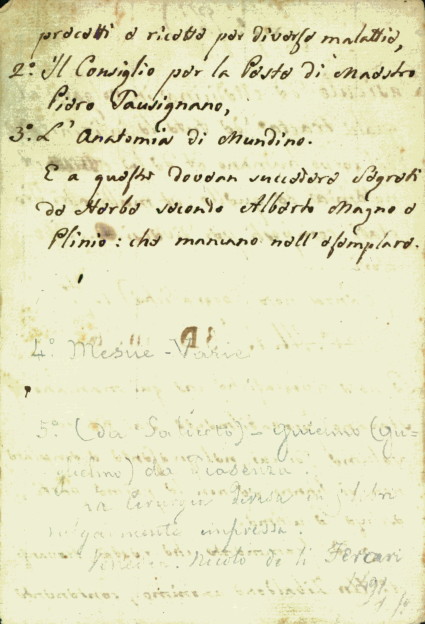 precetti e ricette per diverse malattie,
2.° Il Consiglio per la Peste di Maestro
Piero Tausignano,
3.° L'Anatomia di Mundino.
E a questi dovean succedere Segreti
de Herbe secondo Alberto Magno e
Plinio: che mancano nell'esemplare.
4° Mesue - Varie
5° (da Saliceto) - Guielmo (Gu-
glielmo) da Piasenza.
la Cirurgia libri
vulgarmente impressa.
Venezia. Nicolò di li Ferari
1491